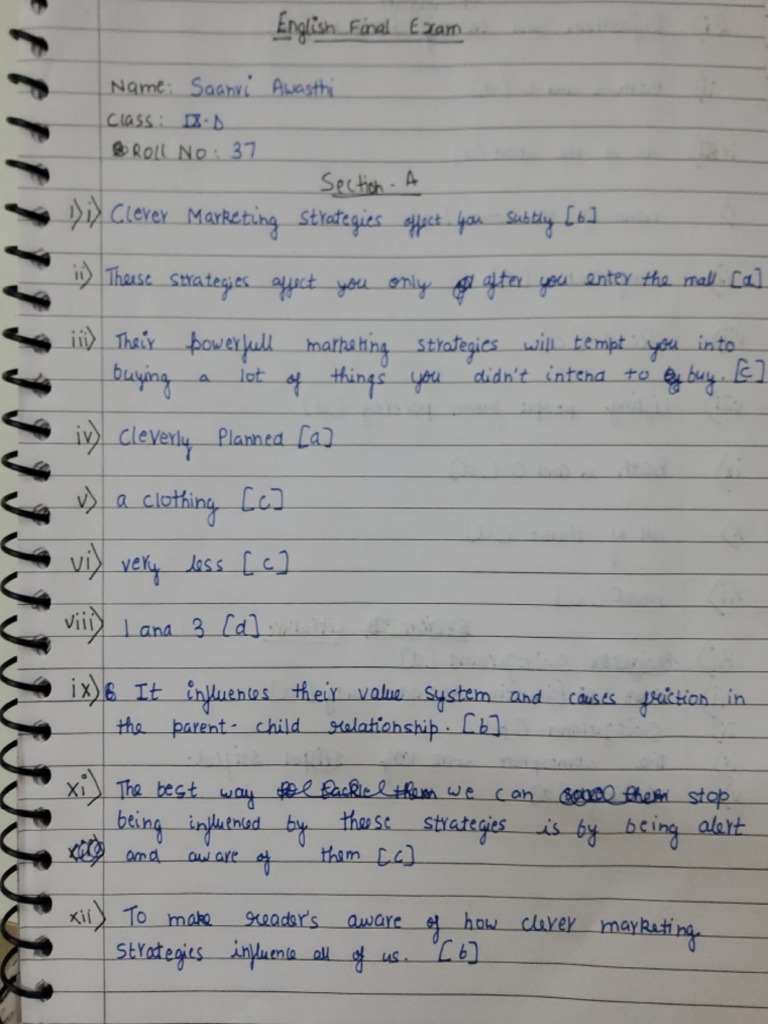 English Final Exam
Name: Saanvi Awasthi
Class: IX.D
Roll No: 37
Section - A
1) i) Clever Marketing Strategies affect you subtly [b]
ii) Theese strategies affect you only after you enter the mall. [a]
iii) Their powerfull marketing strategies will tempt you into
buying a lot of things you didn't intend to buy. [c]
iv) Cleverly Planned [a]
v) a clothing [c]
vi) very less [c]
viii) 1 and 3 [d]
ix) It influences their value system and causes friction in
the parent-child relationship. [b]
xi) The best way we can stop
being influenced by theese strategies is by being alert
and aware of them [c]
xii) To make reader's aware of how clever marketing
strategies influence all of us. [b]